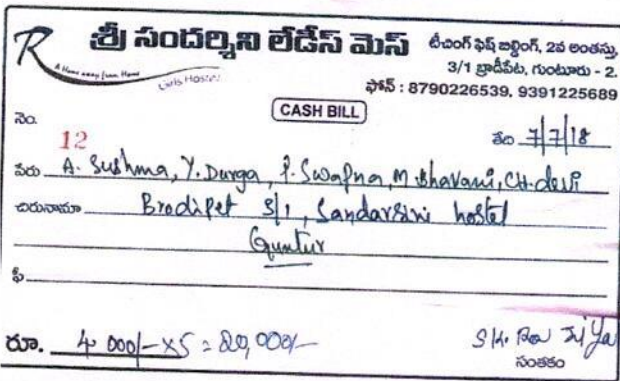 R శ్రీ సందర్శిని లేడీస్ మెస్
A Home away from Home
Girls Hostel
టీచింగ్ ఫిష్ బిల్డింగ్, 2వ అంతస్తు,
3/1 బ్రాడీపేట, గుంటూరు - 2.
ఫోన్ : 8790226539, 9391225689
CASH BILL
నెం. 12
తేది 7/7/18
పేరు A. Sushma, Y. Durga, P. Swapna, M Bhavani, CH. devi
చిరునామా Brodipet 3/1, Sandarsini hostel
Guntur
ఫీ
రూ. 4000/- x5 = 20,000/-
సంతకం